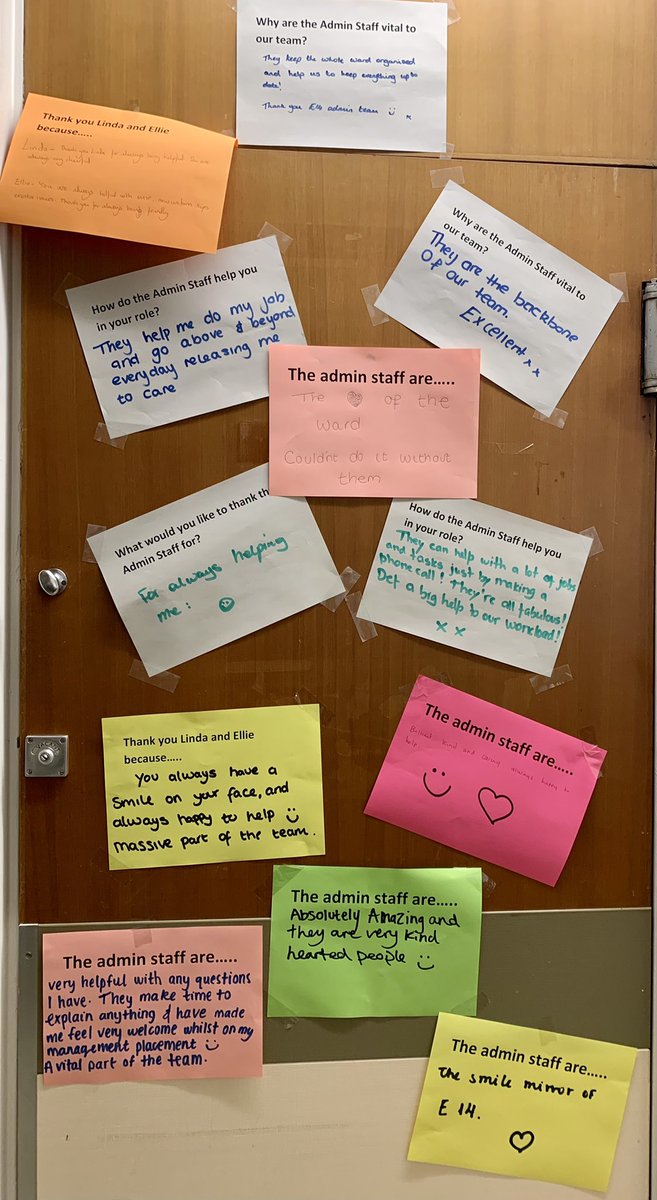 Why are the Admin Staff vital to
our team?
They keep the whole ward organised
and help us to keep everything up to
date!
Thank you E14 admin team
x
Thank you Linda and Ellie
because…..
Linda - Thank you Linda for always being helpful.
always my cheerful
Ellie - You are always helpful with
Thank you for always being friendly
Why are the Admin Staff vital to
our team?
They are the backbone
Of our team.
Excellent x x
How do the Admin Staff help you
in your role?
They help me do my job
and go above & beyond
everyday releasing me
to care
The admin staff are…..
The ♥ of the
ward
Couldn't do it without
them
What would you like to thank the
Admin Staff for?
For always helping
me!
How do the Admin Staff help you
in your role?
They can help with a lot of jobs
and tasks just by making a
phonecall! They're all fabulous!
Def a big help to our workload!
x x
Thank you Linda and Ellie
because…..
You always have a
smile on your face, and
always happy to help
massive part of the team.
The admin staff are…..
kind and caring always happy to
help.
The admin staff are…..
Absolutely Amazing and
they are very kind
hearted people
The admin staff are…..
very helpful with any questions
I have. They make time to
explain anything & have made
me feel very welcome whilst on my
management placement
A vital part of the team.
The admin staff are…..
the smile mirror of
E 14.